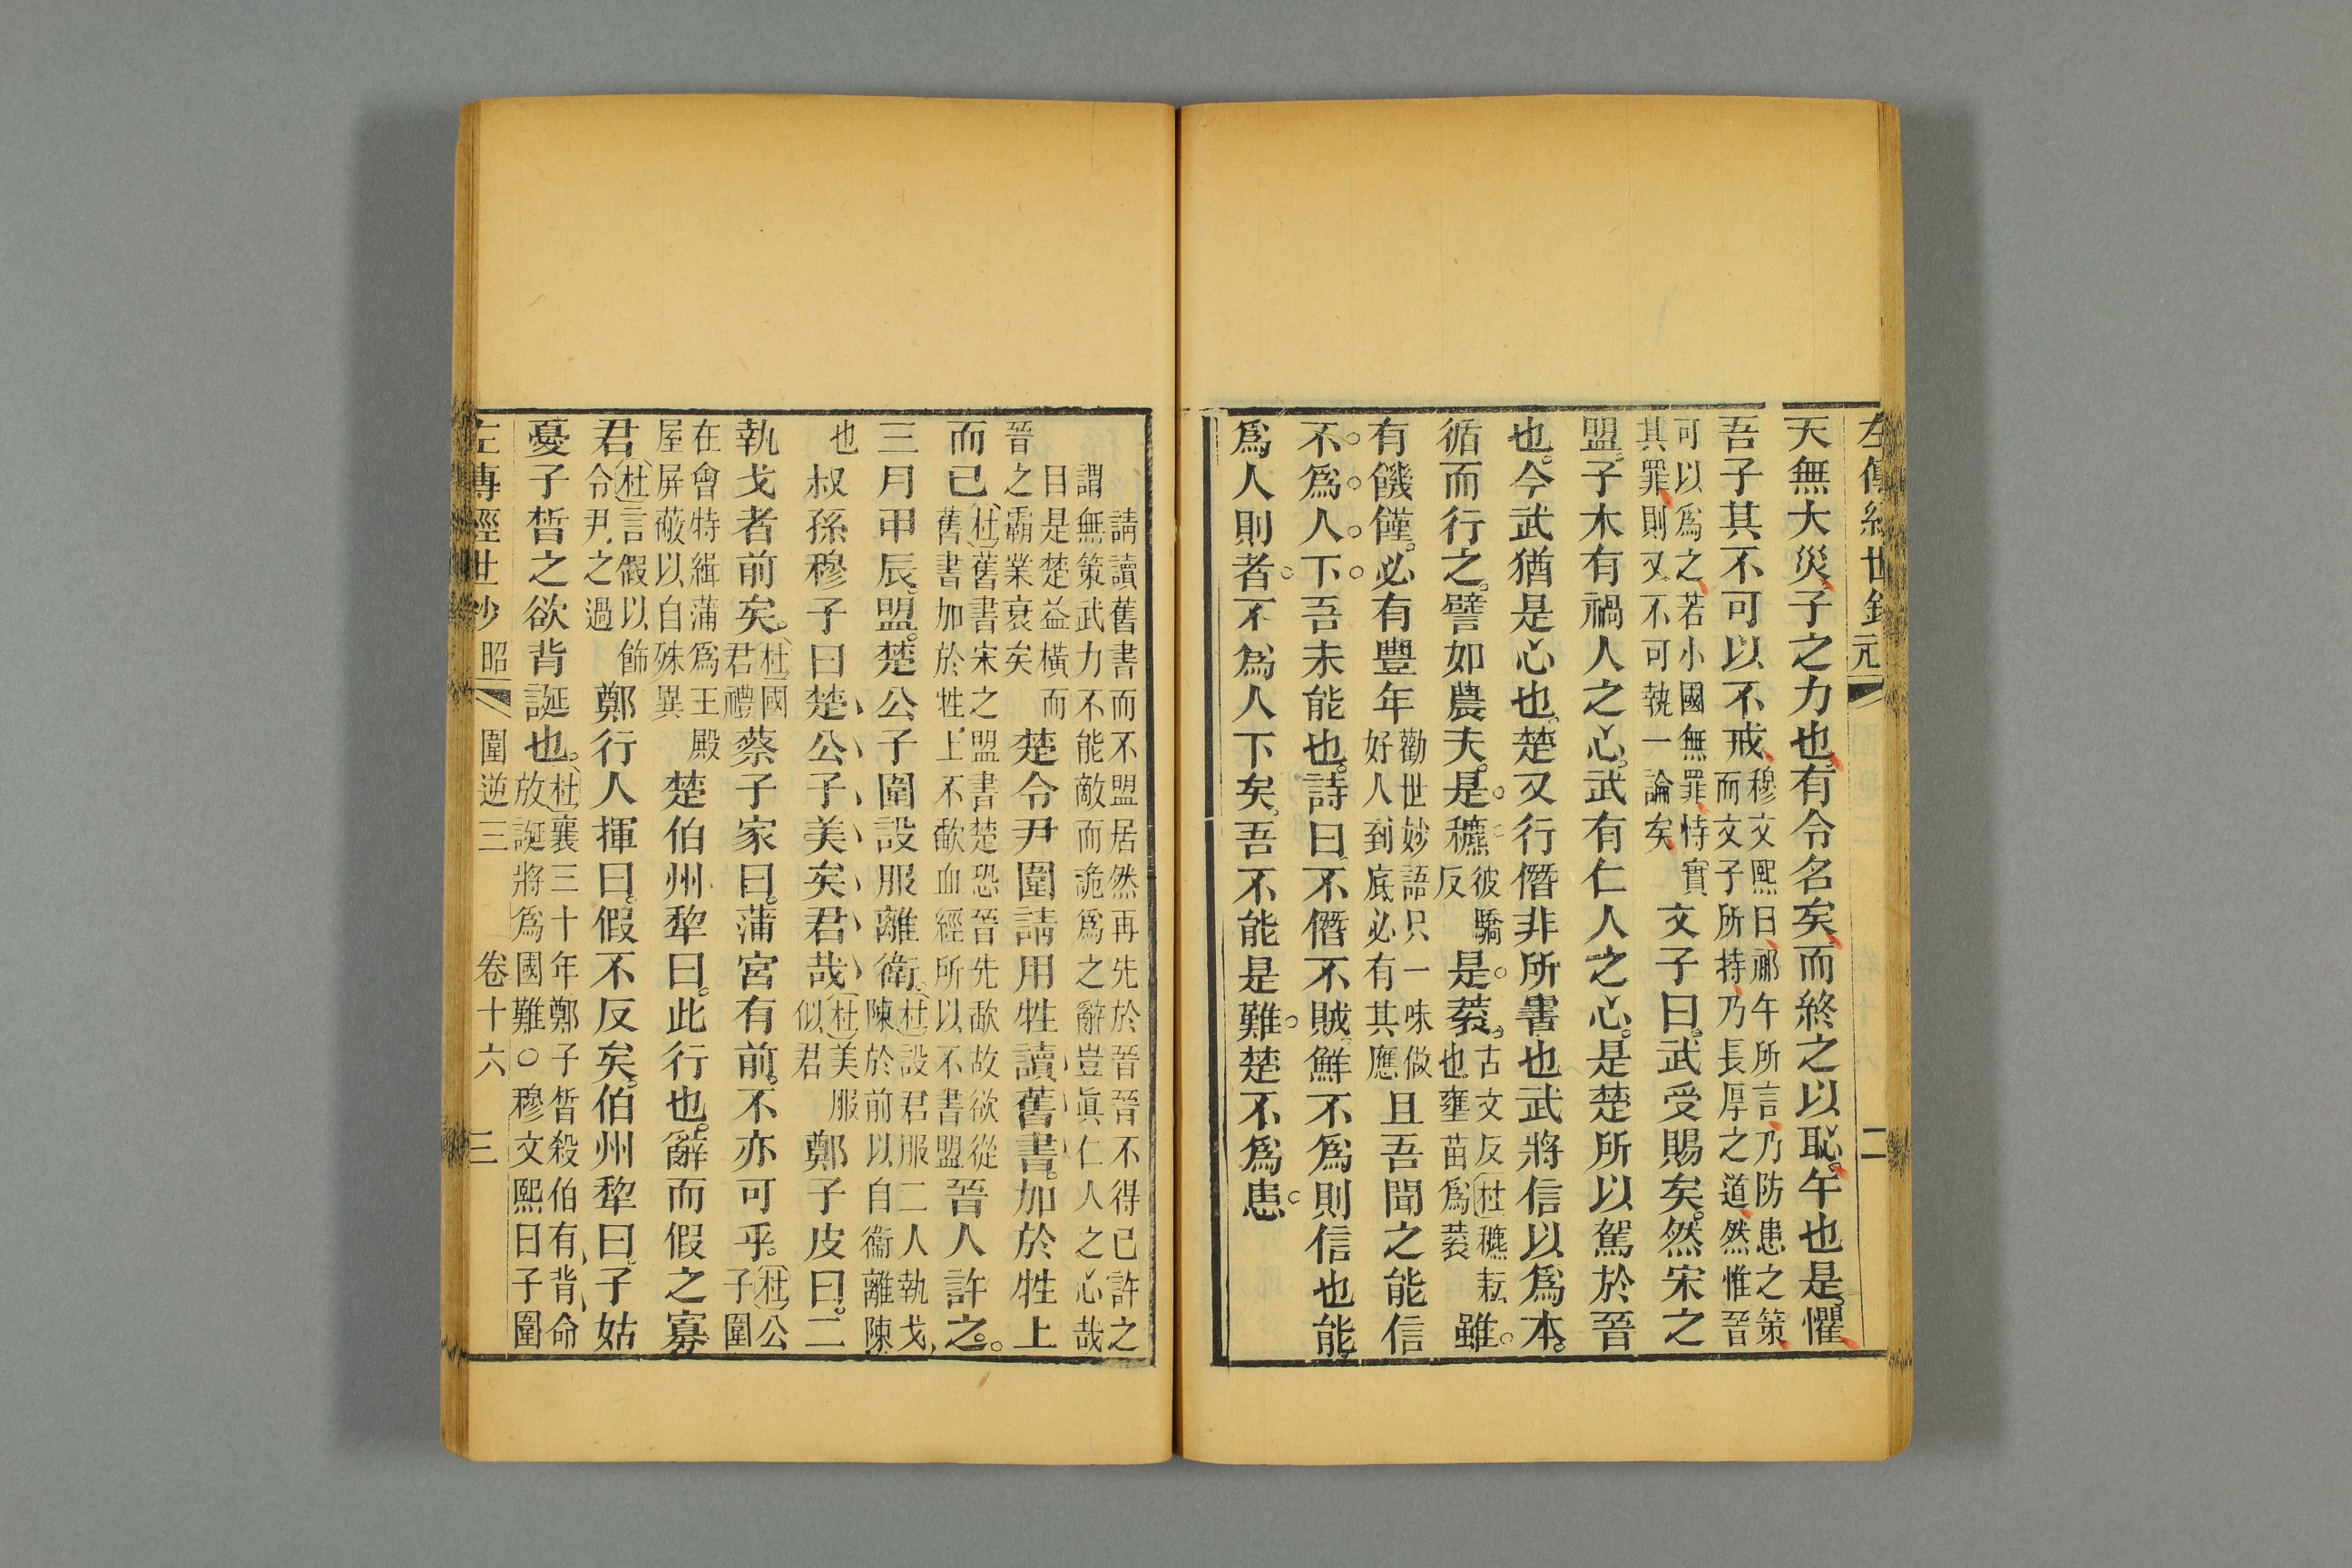 左傳經世鈔 元 二
天無大災子之力也有令名矣而終之以恥午也是懼
吾子其不可以不戒穆文熙曰祁午所言乃防患之策而文子所持乃長厚之道然惟晉
可以爲之若小國無罪恃實其罪則又不可執一論矣文子曰武受賜矣然宋之
盟子木有禍人之心武有仁人之心是楚所以駕於晉
也今武猶是心也楚又行僭非所害也武將信以爲本
循而行之譬如農夫是穮彼驕反是蓘古文反杜穮耘也壅苗爲蓘雖
有饑饉必有豐年勸世妙語只一味做好人到底必有其應且吾聞之能信
不爲人下吾未能也詩曰不僭不賊鮮不爲則信也能
爲人則者不爲人下矣吾不能是難楚不爲患
請讀舊書而不盟居然再先於晉晉不得已許之謂無策武力不能敵而詭爲之辭豈眞仁人之心哉
自是楚益橫而晉之霸業衰矣楚令尹圍請用牲讀舊書加於牲上
而已杜舊書宋之盟書楚恐晉先歃故欲從舊書加於牲上不歃血經所以不書盟晉人許之
三月甲辰盟楚公子圍設服離衛杜設君服二人執戈陳於前以自衞離陳
也叔孫穆子曰楚公子美矣君哉杜美服似君鄭子皮曰二
執戈者前矣杜國君禮蔡子家曰蒲宮有前不亦可乎杜公子圍
在會特緝蒲爲王殿屋屏蔽以自殊異楚伯州犂曰此行也辭而假之寡
君杜言假以飾令尹之過鄭行人揮曰假不反矣伯州犂曰子姑
憂子晳之欲背誕也杜襄三十年鄭子晳殺伯有背命放誕將爲國難○穆文熙曰子圍
左傳經世鈔 昭 圍逆三 卷十六 三